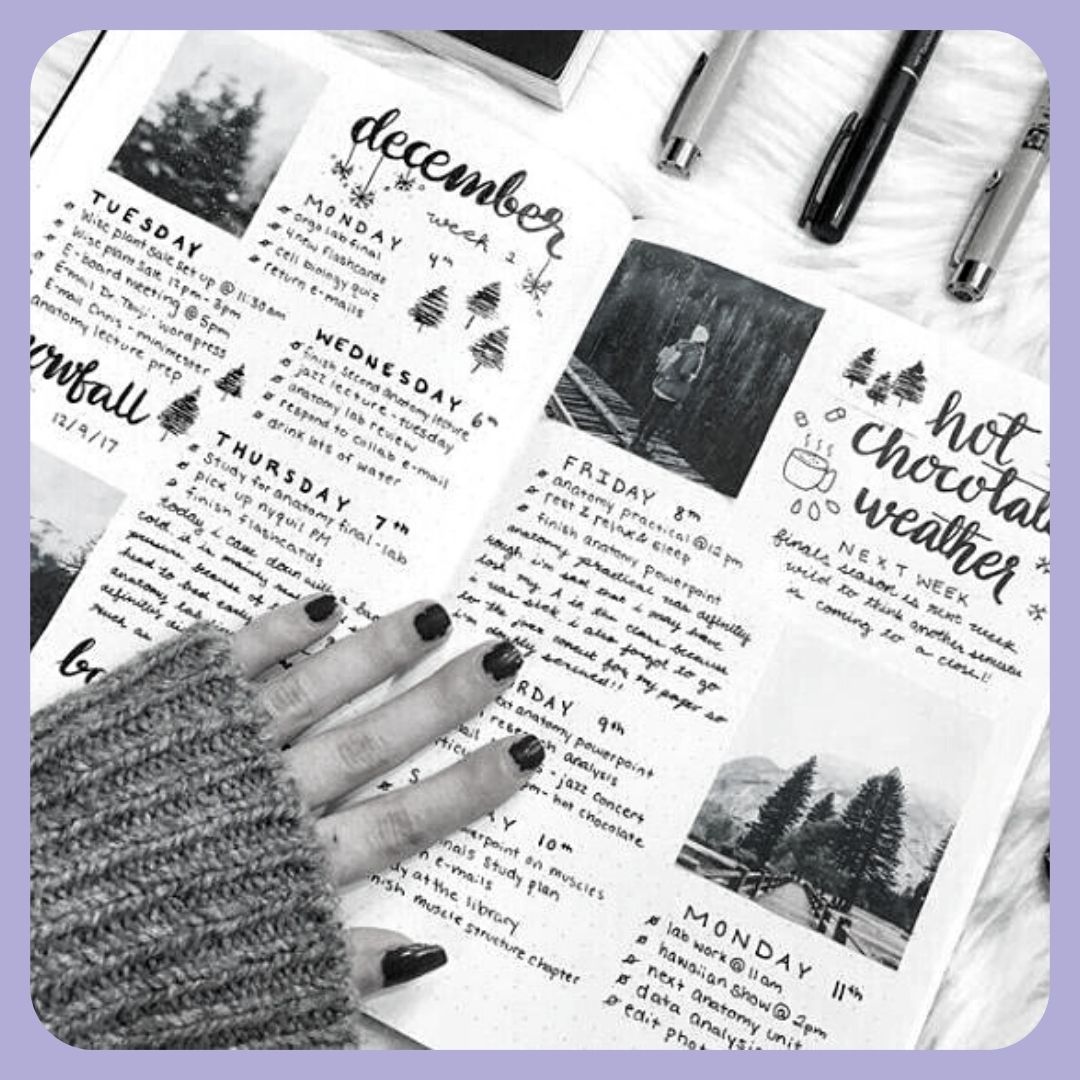 december
week 2
MONDAY 4th
orgo lab final
4 new flashcards
cell biology quiz
return e-mails
TUESDAY
Wise plant sale set up @ 11:30am
Wise plant sale 12pm-3pm
E-board meeting @ 5pm
E-mail Dr. Tonji-wordpress
E-mail Chris - minimester
anatomy lecture prep
owfall
12/9/17
WEDNESDAY 6th
finish second anatomy lecture
jazz lecture - tuesday
anatomy lab review
respond to collab e-mail
drink lots of water
THURSDAY 7th
study for anatomy final-lab
pick up nyquil PM
finish flashcards
today i came down with a
cold, it is mainly
pressure because of
had to head early
anatomy lab
definitely
much as
bo
FRIDAY 8th
anatomy practical @ 12pm
rest & relax & sleep
finish anatomy powerpoint
anatomy practical was definitely
rough i'm sad that i may have
lost my A in the class because
i was sick. i also forgot to go
to the jazz concert for my paper so
i'm
RDAY 9th
ext anatomy powerpoint
analysis
- jazz concert
pm- hot chocolate
S
AY 10th
erpoint on muscles
nals study plan
n e-mails
dy at the library
nish muscle structure chapter
hot
chocolat
weather
NEXT WEEK
finals season is next week
wild to think another semester
is coming to a close!!
MONDAY 11th
lab work @ 11am
hawaiian show @ 2pm
next anatomy unit
data analysis
edit phot